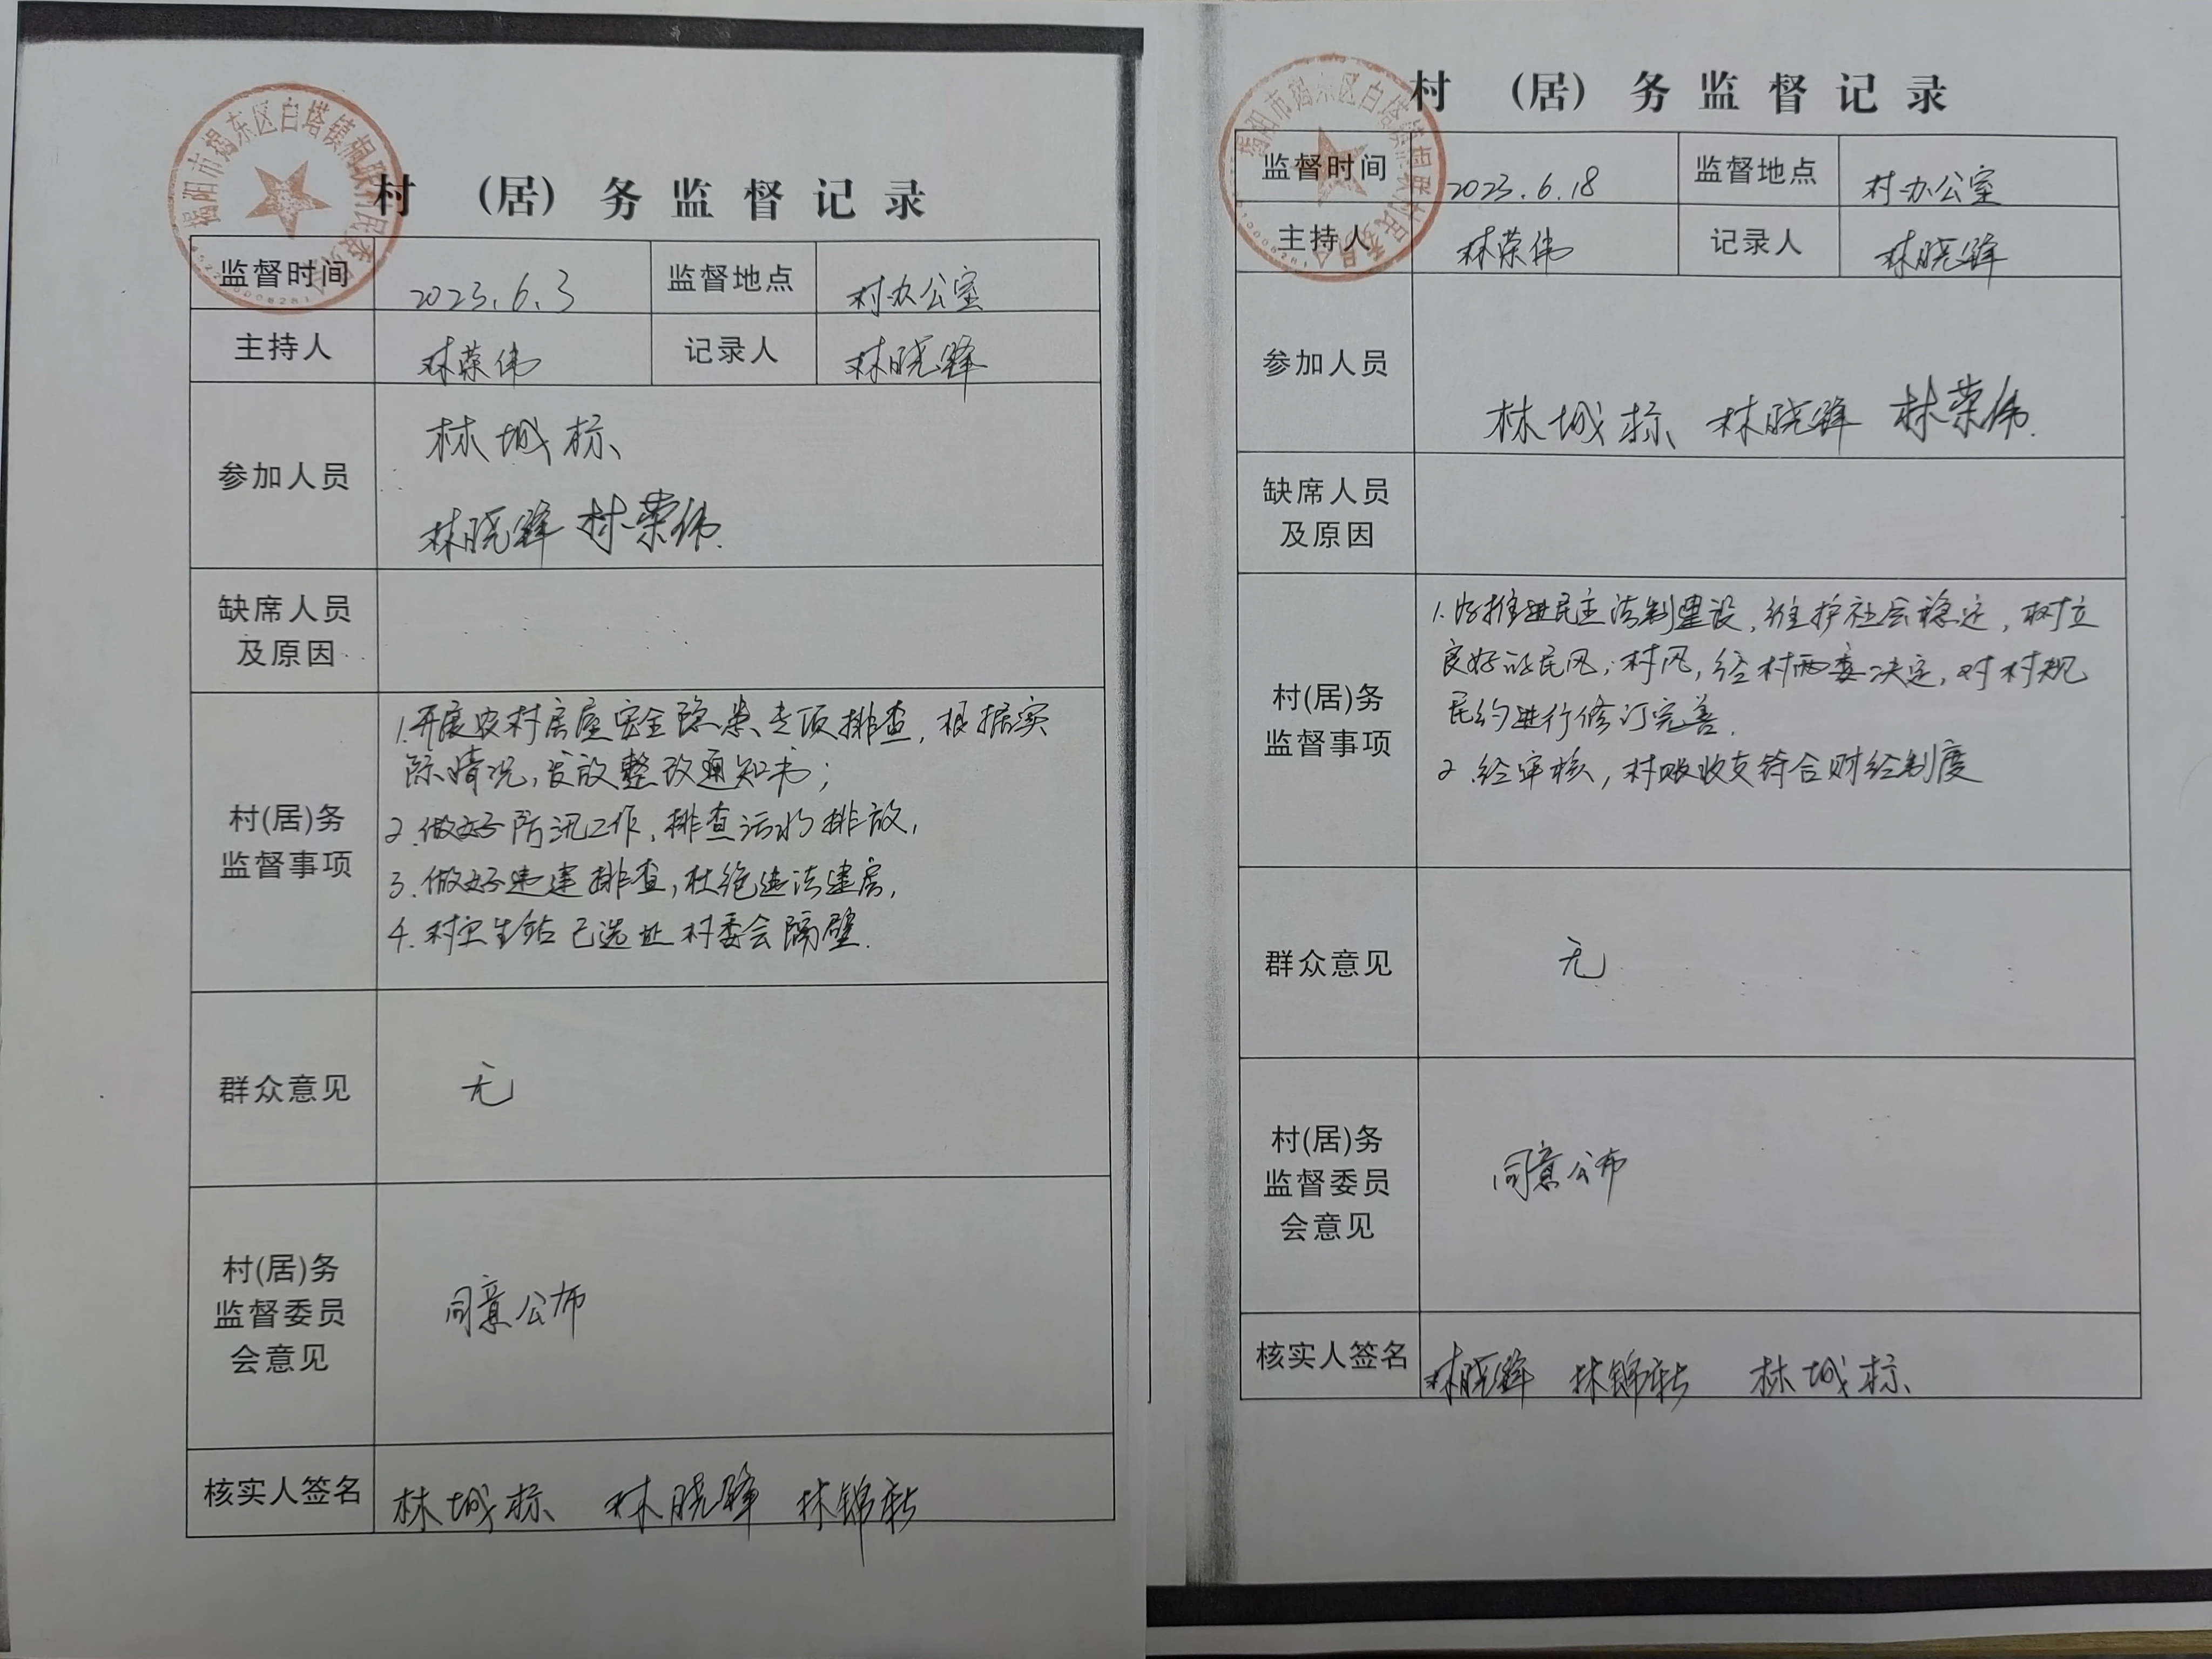 村 (居) 务监督记录
监督时间 2023.6.3 监督地点 村办公室
主持人 林荣伟 记录人 林晓锋
参加人员 林城标
林晓锋 林荣伟
缺席人员
及原因
村(居)务
监督事项
1.开展农村房屋安全隐患专项排查,根据实
际情况,发放整改通知书;
2.做好防汛工作,排查污水排放,
3.做好违建排查,杜绝违法建房,
4.村卫生站已选址村委会隔壁.
群众意见 无
村(居)务
监督委员
会意见
同意公布
核实人签名 林城标 林晓锋 林锦
揭阳市揭东区白塔镇 村民委员会
村 (居) 务监督记录
监督时间 2023.6.18 监督地点 村办公室
主持人 林荣伟 记录人 林晓锋
参加人员 林城标 林晓锋 林荣伟
缺席人员
及原因
村(居)务
监督事项
1.为推进民主法制建设,维护社会稳定,树立
良好的民风,村风,经村两委决定,对村规
民约进行修订完善.
2.经审核,村账收支符合财经制度
群众意见 无
村(居)务
监督委员
会意见
同意公布
核实人签名 林晓锋 林锦 林城标
揭阳市揭东区白塔镇 村民委员会